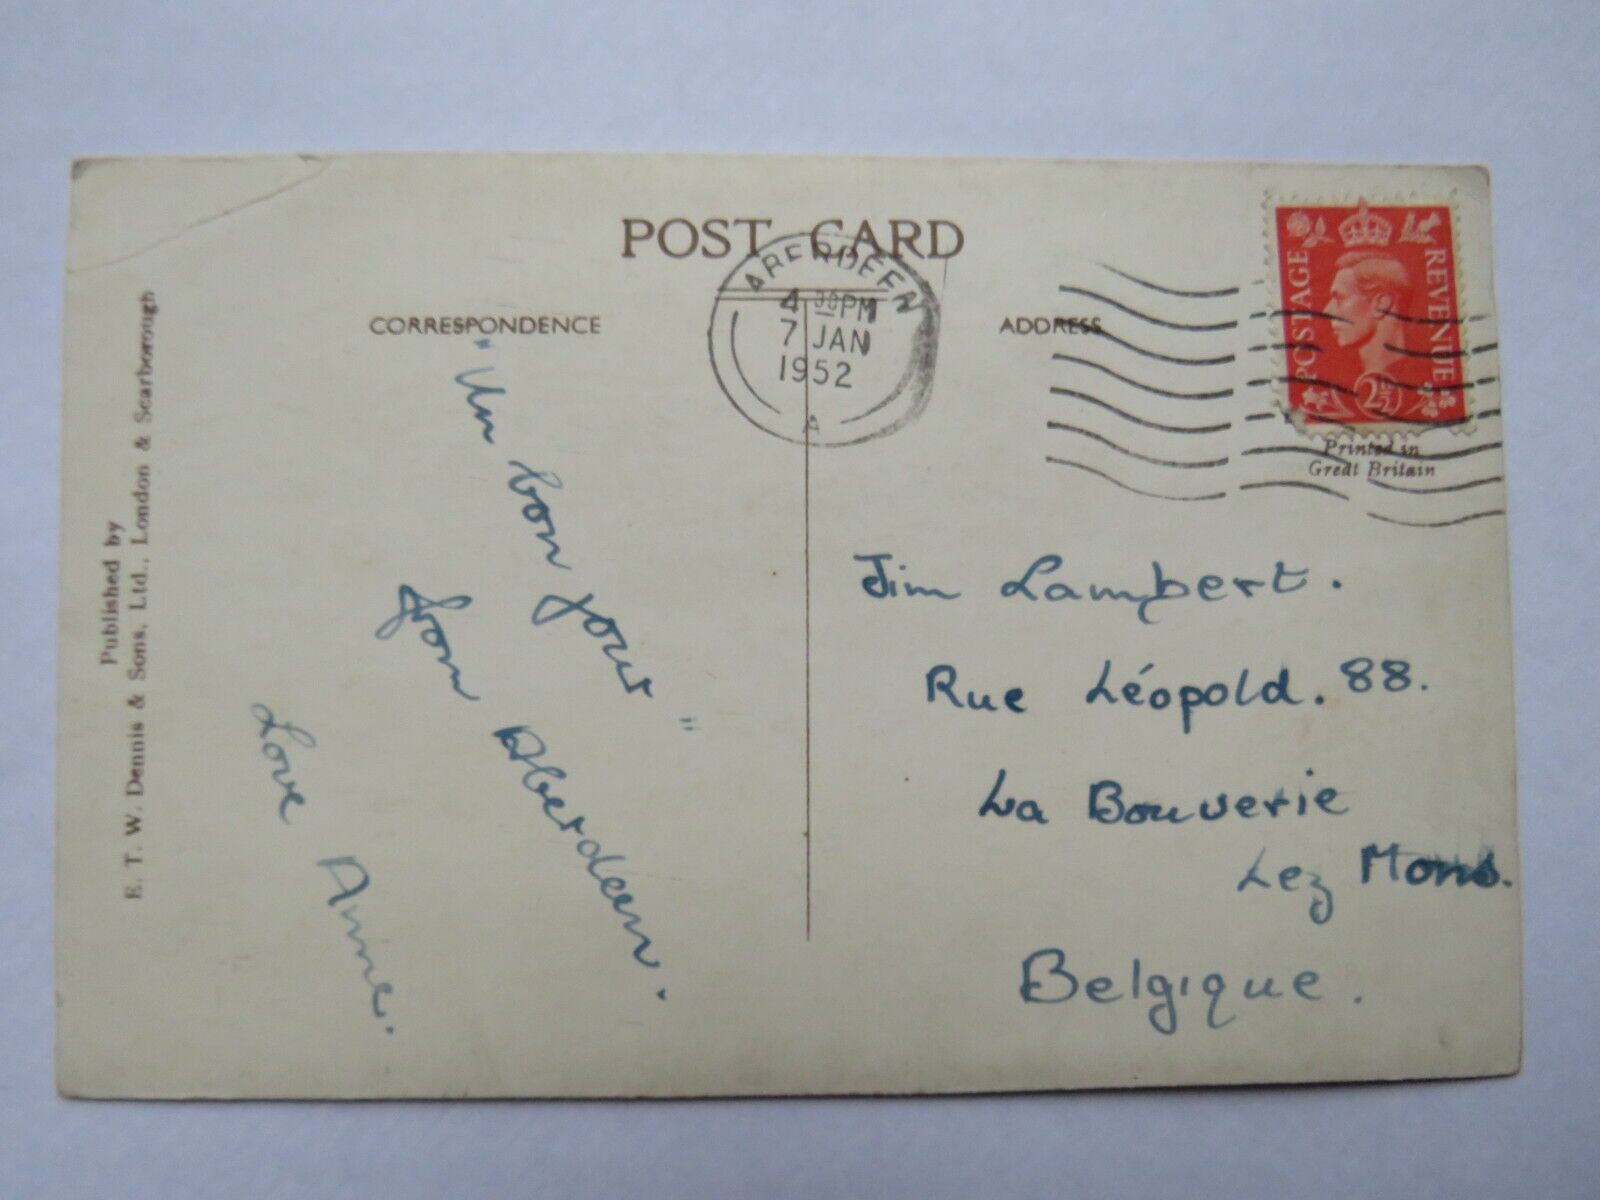 POST CARD
CORRESPONDENCE
ADDRESS
ABERDEEN
4 30PM
7 JAN
1952
A
POSTAGE
REVENUE
2½D
Printed in
Great Britain
"Un bon jour"
from Aberdeen.
Love Anne.
Jim Lambert.
Rue Léopold. 88.
La Bouverie
Lez Mons.
Belgique.
Published by
E. T. W. Dennis & Sons, Ltd., London & Scarborough